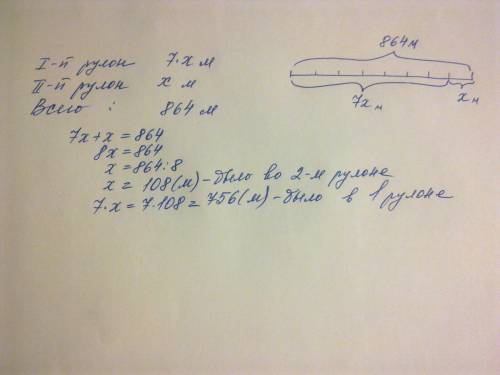 I-й рулон 7·x м
II-й рулон x м
Всего : 864 м
864 м
7x м
x м
7x+x=864
8x=864
x=864:8
x=108(м)-было во 2-м рулоне
7·x=7·108=756(м)-было в 1 рулоне